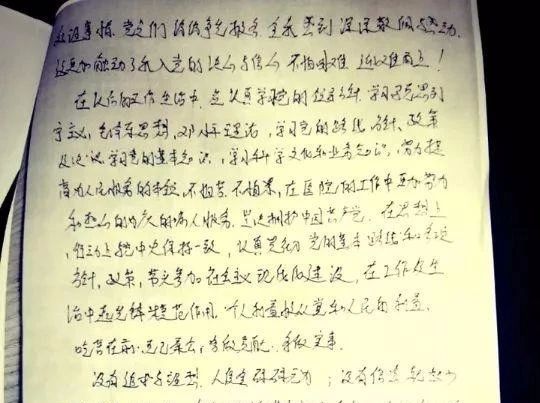 这调事情，党员们纷纷争先报名，主我感到深深敬佩感动，
这更加触动了我入党的决心与信心，不怕困难，迎难而上！
在以后的工作生活中，应认真学习党的优良方针，学习马克思列
宁主义，毛泽东思想，邓小平理论，学习党的路线方针、政策
及决议，学习党的基本知识，学习科学文化和业务知识，努力提
高为人民服务的本领，不怕苦、不怕累，在医院的工作中更加努力
和热心的为广大的病人服务，坚决拥护中国共产党，在思想上
，行动上和党中央保持一致，认真贯彻党的基本路线和各项
方针，政策，带头参加社会主义现代化建设，在工作和生
活中起先锋模范作用，个人利益服从党和人民的利益，
吃苦在前，克己奉公，多做贡献，多做实事。
没有追求与理想，人便会碌碌无为；没有信念